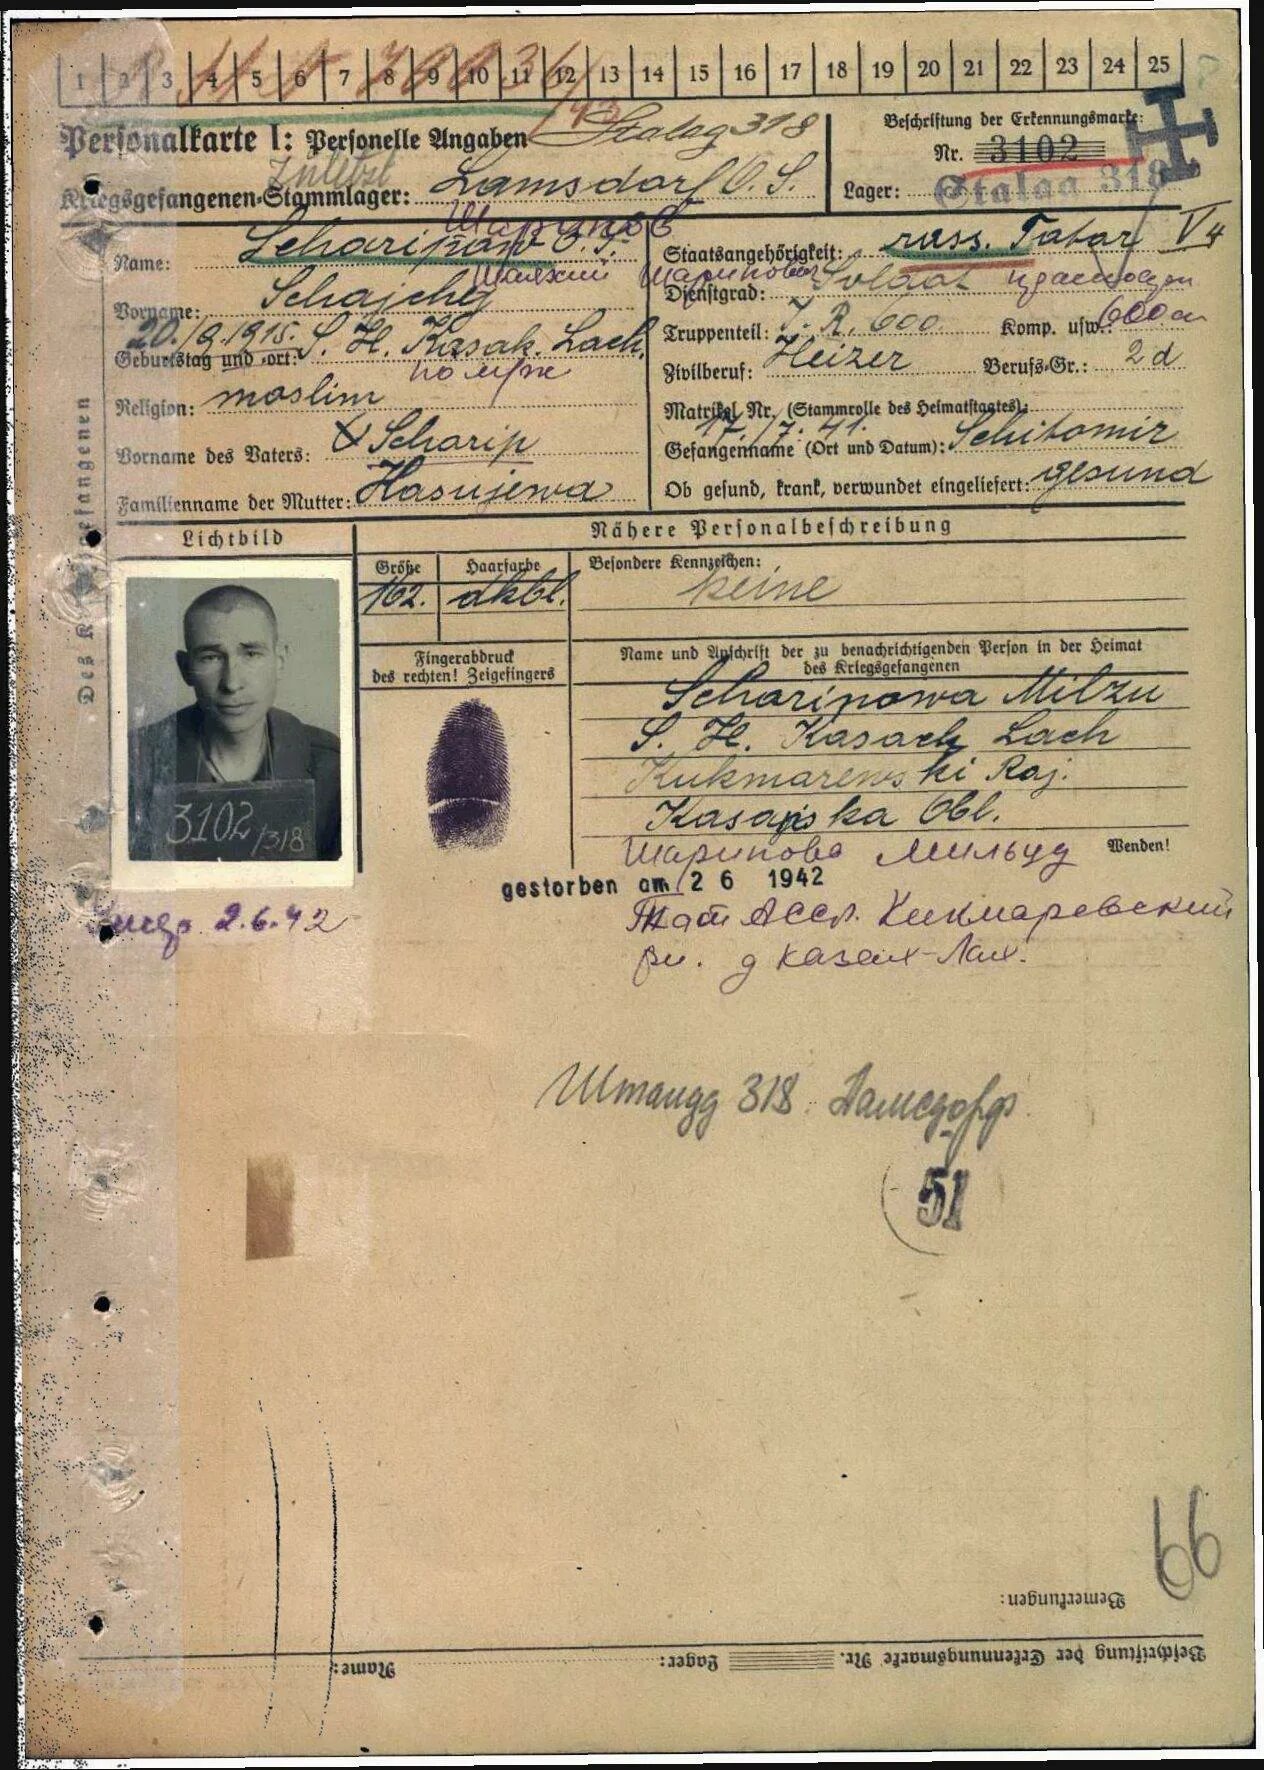 1 2 3 4 5 6 7 8 9 10 11 12 13 14 15 16 17 18 19 20 21 22 23 24 25
Personalkarte I: Personelle Angaben
Stalag 318
Kriegsgefangenen-Stammlager: Lamsdorf O.S.
Beschriftung der Erkennungsmarke:
Nr. 3102
Lager: Stalag 318
Шарипов
Name: Scharipow
Staatsangehörigkeit: russ. Tatar V4
Шарипович
Vorname: Schajchg
Dienstgrad: Soldat
Geburtstag und -ort: S. H. Kasak. Lach
Truppenteil: I. R. 600 Komp. usw.:
Zivilberuf: Heizer Berufs-Gr.: 2d
Religion: moslim
Matrikel Nr. (Stammrolle des Heimatstaates):
Vorname des Vaters: Scharip
Gefangennahme (Ort und Datum): 17./7. 41. Schitomir
Familienname der Mutter: Hasujewa
Ob gesund, krank, verwundet eingeliefert: gesund
Des Kriegsgefangenen
Lichtbild
Nähere Personalbeschreibung
Größe Haarfarbe Besondere Kennzeichen:
162. dkbl. keine
Fingerabdruck
des rechten! Zeigefingers
Name und Anschrift der zu benachrichtigenden Person in der Heimat
des Kriegsgefangenen
Scharipowa Milzu
S. H. Kasach Lach
Kukmarewski Raj.
Kasanska Obl.
3102/318
Шарипова Мильзу
Wenden!
gestorben am 2 6 1942
2.6.42
Тат АССР. Кукмаревский
рн. д Казах-Лах.
Шталаг 318 Ламсдорф
51
66
Bemerkungen:
Beschriftung der Erkennungsmarke Nr. Lager: Name: